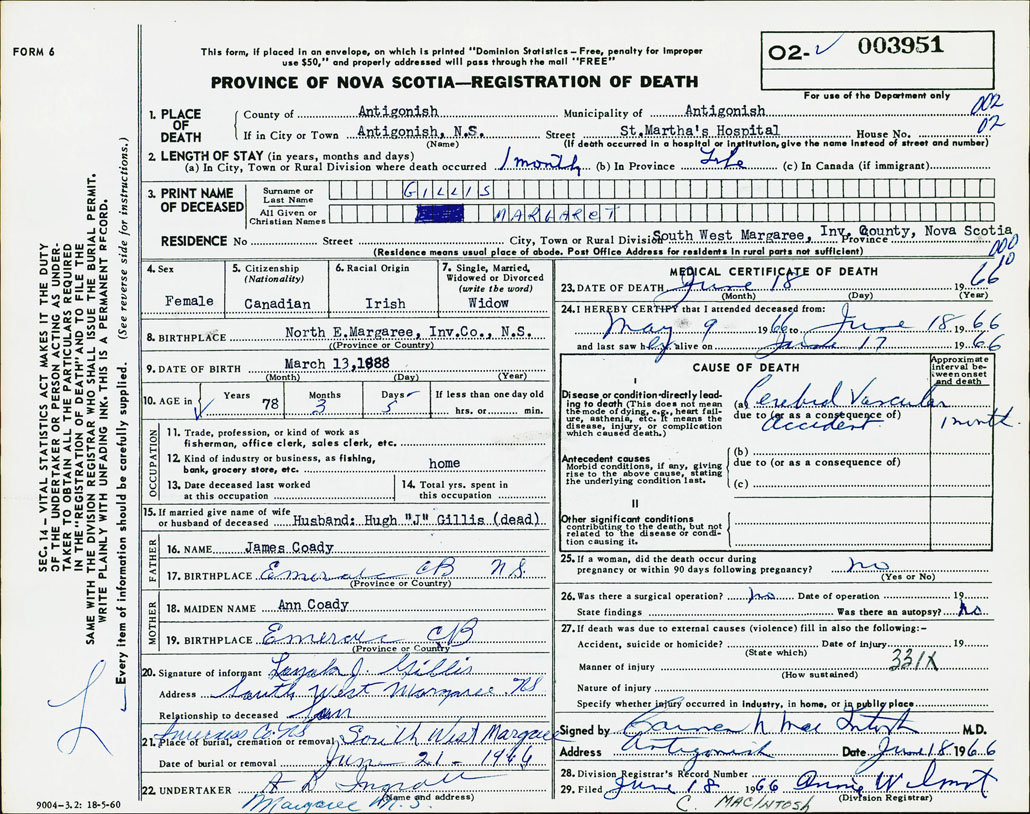 FORM 6
This form, if placed in an envelope, on which is printed "Dominion Statistics—Free, penalty for improper
use $50," and properly addressed will pass through the mail "FREE"
PROVINCE OF NOVA SCOTIA—REGISTRATION OF DEATH
02- 003951
For use of the Department only
002
02
1. PLACE OF DEATH
County of Antigonish Municipality of Antigonish
If in City or Town Antigonish, N.S. Street St.Martha's Hospital House No.
(Name) (If death occurred in a hospital or institution, give the name instead of street and number)
2. LENGTH OF STAY (in years, months and days)
(a) In City, Town or Rural Division where death occurred 1 month (b) In Province Life (c) In Canada (if immigrant)
3. PRINT NAME OF DECEASED
Surname or Last Name GILLIS
All Given or Christian Names MARGARET
RESIDENCE No Street City, Town or Rural Division South West Margaree, Inv. County, Nova Scotia Province
(Residence means usual place of abode. Post Office Address for residents in rural parts not sufficient)
000
10
4. Sex Female
5. Citizenship (Nationality) Canadian
6. Racial Origin Irish
7. Single, Married, Widowed or Divorced (write the word) Widow
8. BIRTHPLACE North E.Margaree, Inv.Co., N.S.
(Province or Country)
9. DATE OF BIRTH March 13,1888
(Month) (Day) (Year)
10. AGE in Years 78 Months 3 Days 5 If less than one day old hrs. or min.
OCCUPATION
11. Trade, profession, or kind of work as
fisherman, office clerk, sales clerk, etc.
12. Kind of industry or business, as fishing,
bank, grocery store, etc. home
13. Date deceased last worked
at this occupation
14. Total yrs. spent in
this occupation
15. If married give name of wife
or husband of deceased Husband: Hugh "J" Gillis (dead)
FATHER
16. NAME James Coady
17. BIRTHPLACE CB N S.
(Province or Country)
MOTHER
18. MAIDEN NAME Ann Coady
19. BIRTHPLACE CB
(Province or Country)
20. Signature of informant J. Gillis
Address South West Margaree NS
Relationship to deceased Son
Inverness Co NS
21. Place of burial, cremation or removal South West Margaree
Date of burial or removal June 21 - 1966
22. UNDERTAKER
(Name and address)
Margaree
9004-3.2: 18-5-60
MEDICAL CERTIFICATE OF DEATH
23. DATE OF DEATH June 18 1966
(Month) (Day) (Year)
24. I HEREBY CERTIFY that I attended deceased from:
May 9 1966 to June 18 1966
and last saw her alive on June 17 1966
CAUSE OF DEATH
Approximate interval between onset and death
I
Disease or condition directly leading to death (This does not mean the mode of dying, e.g., heart failure, asthenia, etc. It means the disease, injury, or complication which caused death.)
(a) Cerebral Vascular
due to (or as a consequence of)
Accident 1 month
Antecedent causes
Morbid conditions, if any, giving rise to the above cause, stating the underlying condition last.
(b)
due to (or as a consequence of)
(c)
II
Other significant conditions
contributing to the death, but not related to the disease or condition causing it.
25. If a woman, did the death occur during
pregnancy or within 90 days following pregnancy? no
(Yes or No)
26. Was there a surgical operation? no Date of operation 19
State findings Was there an autopsy? no
27. If death was due to external causes (violence) fill in also the following:—
Accident, suicide or homicide? Date of injury 19
(State which)
331X
Manner of injury
(How sustained)
Nature of injury
Specify whether injury occurred in industry, in home, or in public place
Signed by Mac Intosh M.D.
Address Antigonish Date June 18 1966
28. Division Registrar's Record Number
29. Filed June 18 1966
(Division Registrar)
C. MACINTOSH
SEC. 14 — VITAL STATISTICS ACT MAKES IT THE DUTY
OF THE UNDERTAKER OR PERSON ACTING AS UNDER-
TAKER TO OBTAIN ALL THE PARTICULARS REQUIRED
IN THE "REGISTRATION OF DEATH" AND TO FILE THE
SAME WITH THE DIVISION REGISTRAR WHO SHALL ISSUE THE BURIAL PERMIT.
WRITE PLAINLY WITH UNFADING INK. THIS IS A PERMANENT RECORD.
Every item of information should be carefully supplied. (See reverse side for instructions.)